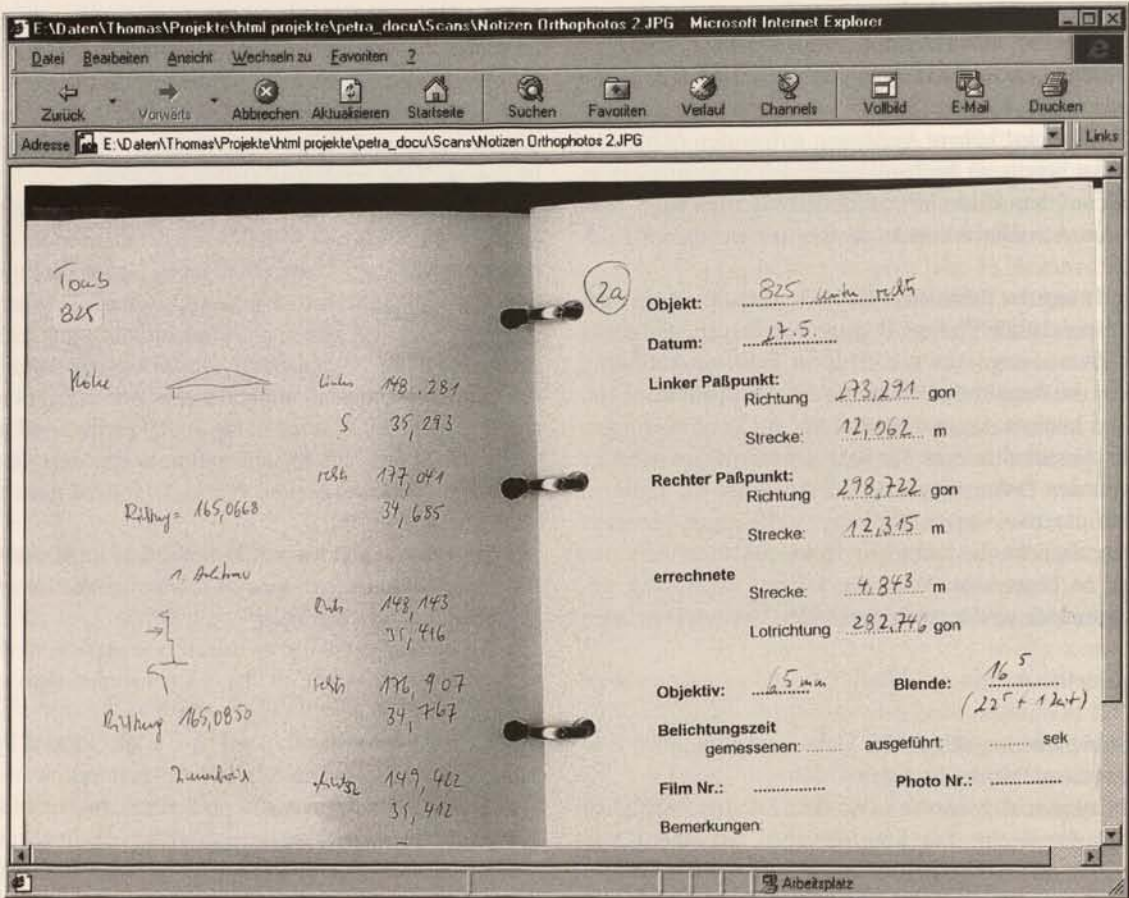 E:\Daten\Thomas\Projekte\html projekte\petra_docu\Scans\Notizen Orthophotos 2.JPG - Microsoft Internet Explorer
Datei Bearbeiten Ansicht Wechseln zu Favoriten ?
Zurück Vorwärts Abbrechen Aktualisieren Startseite Suchen Favoriten Verlauf Channels Vollbild E-Mail Drucken
Adresse E:\Daten\Thomas\Projekte\html projekte\petra_docu\Scans\Notizen Orthophotos 2.JPG Links
Tomb
825
Höhe links 148,281
S 35,293
rechts 177,041
34,685
Richtung = 165,0668
1. Architrav
links 148,143
35,416
rechts 176,907
34,767
Richtung 165,0850
149,422
35,412
2a
Objekt: 825 unten rechts
Datum: 27.5.
Linker Paßpunkt:
Richtung 273,291 gon
Strecke: 12,062 m
Rechter Paßpunkt:
Richtung 298,722 gon
Strecke: 12,315 m
errechnete
Strecke: 4,843 m
Lotrichtung 282,746 gon
Objektiv: 65 mm Blende: 16 5
(22 5 + 12
Belichtungszeit
gemessenen: ........ ausgeführt: ............... sek
Film Nr.: ............... Photo Nr.: ...............
Bemerkungen:
Arbeitsplatz